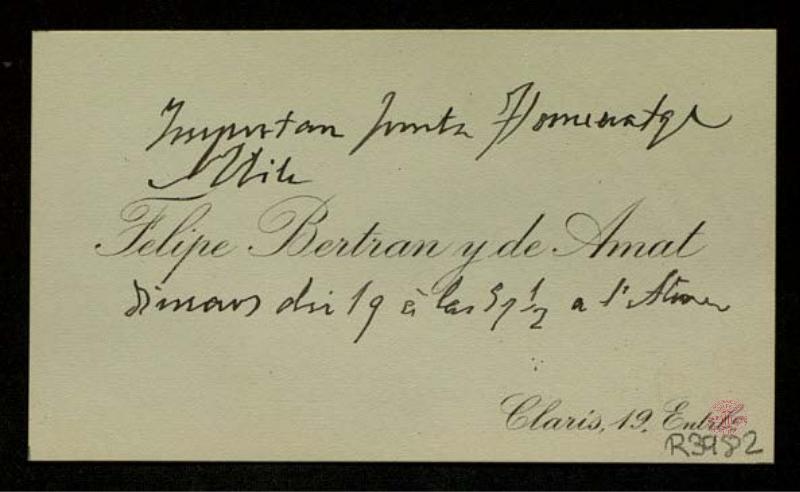 Important Junta Homenatge
Milà
Felipe Bertran y de Amat
dimars dia 19 à las 5 y ½ a l'Ateneu
Claris, 19, Entrlo
R3982